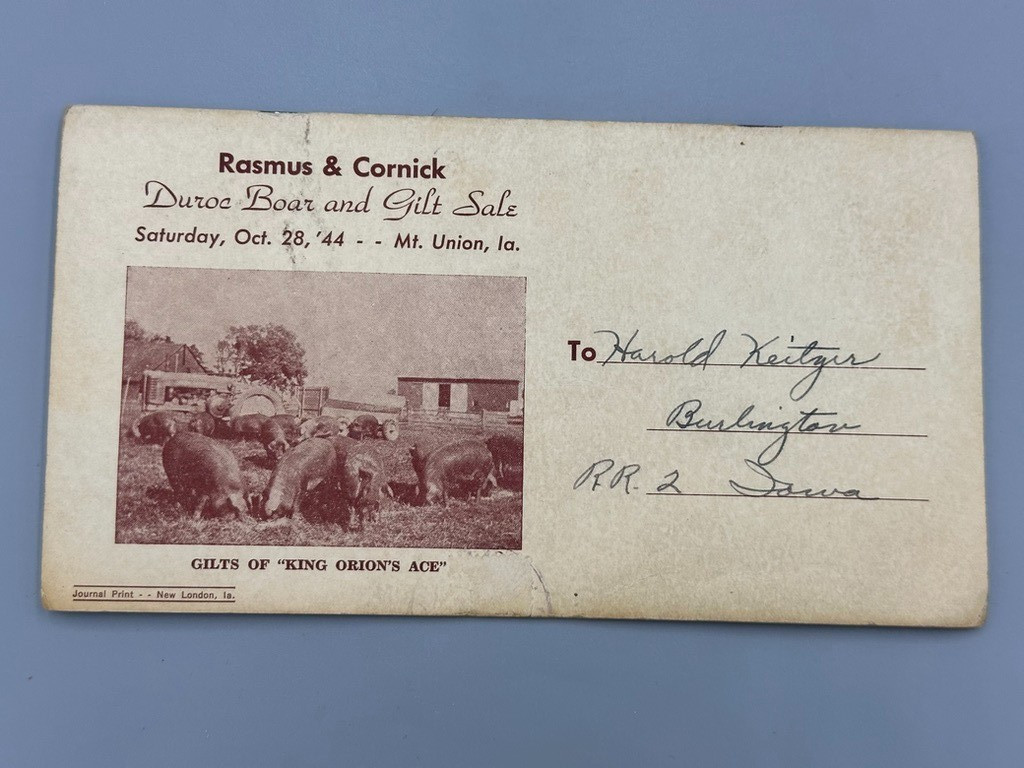 Rasmus & Cornick
Duroc Boar and Gilt Sale
Saturday, Oct. 28, '44 - - Mt. Union, Ia.
GILTS OF "KING ORION'S ACE"
Journal Print - - New London, Ia.
To Harold Keitzer
Burlington
R.R. 2 Iowa